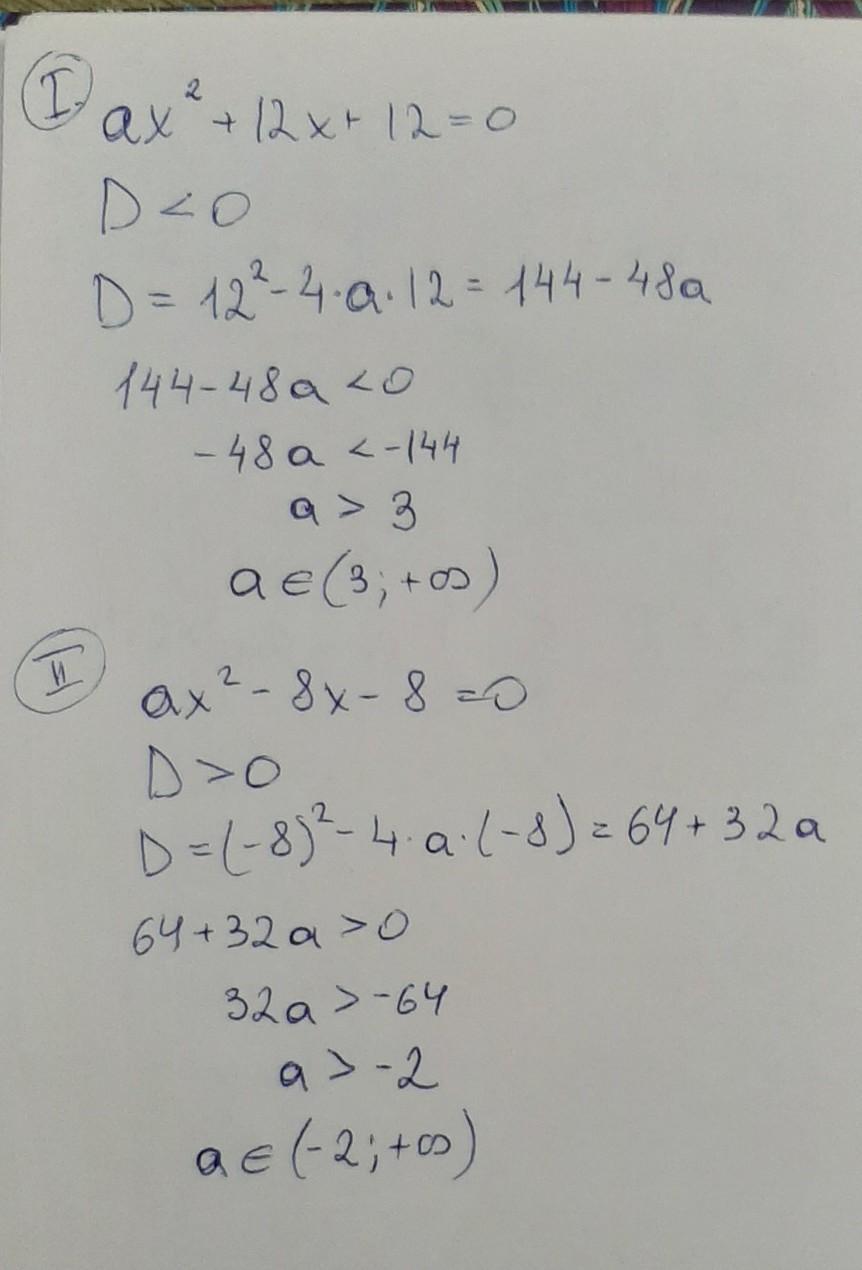 I. ax² + 12x + 12 = 0
D < 0
D = 12² - 4·a·12 = 144 - 48a
144 - 48a < 0
-48a < -144
a > 3
a ∈ (3; +∞)
II ax² - 8x - 8 = 0
D > 0
D = (-8)² - 4·a·(-8) = 64 + 32a
64 + 32a > 0
32a > -64
a > -2
a ∈ (-2; +∞)